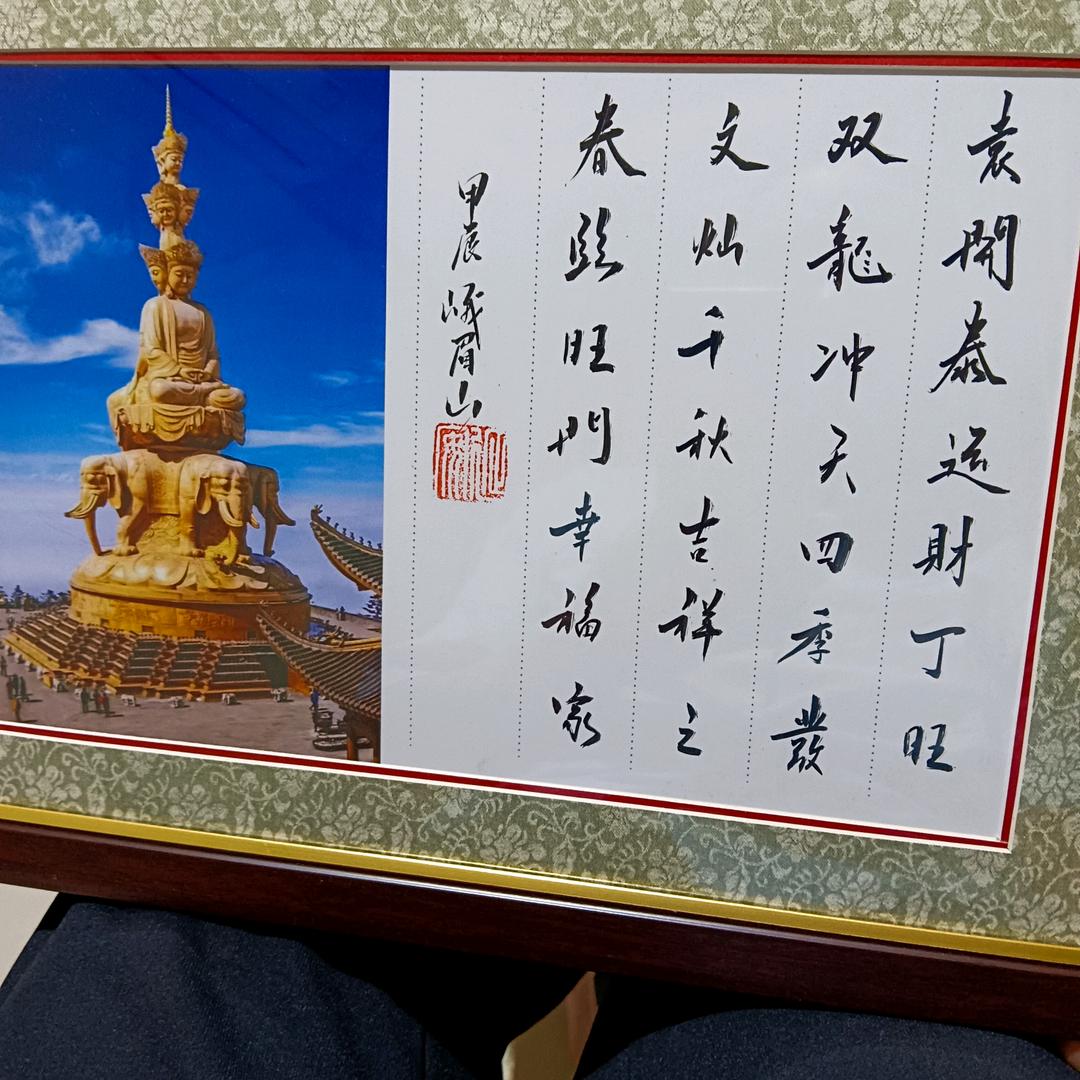 袁開泰运財丁旺
双龍冲天四季發
文灿千秋吉祥之
春臨旺門幸福家
甲辰峨眉山